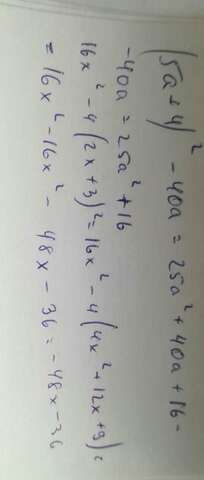 (5a+4)² - 40a = 25a² + 40a + 16 -
-40a = 25a² + 16
16x² - 4(2x+3)² = 16x² - 4(4x² + 12x + 9) =
= 16x² - 16x² - 48x - 36 = -48x - 36